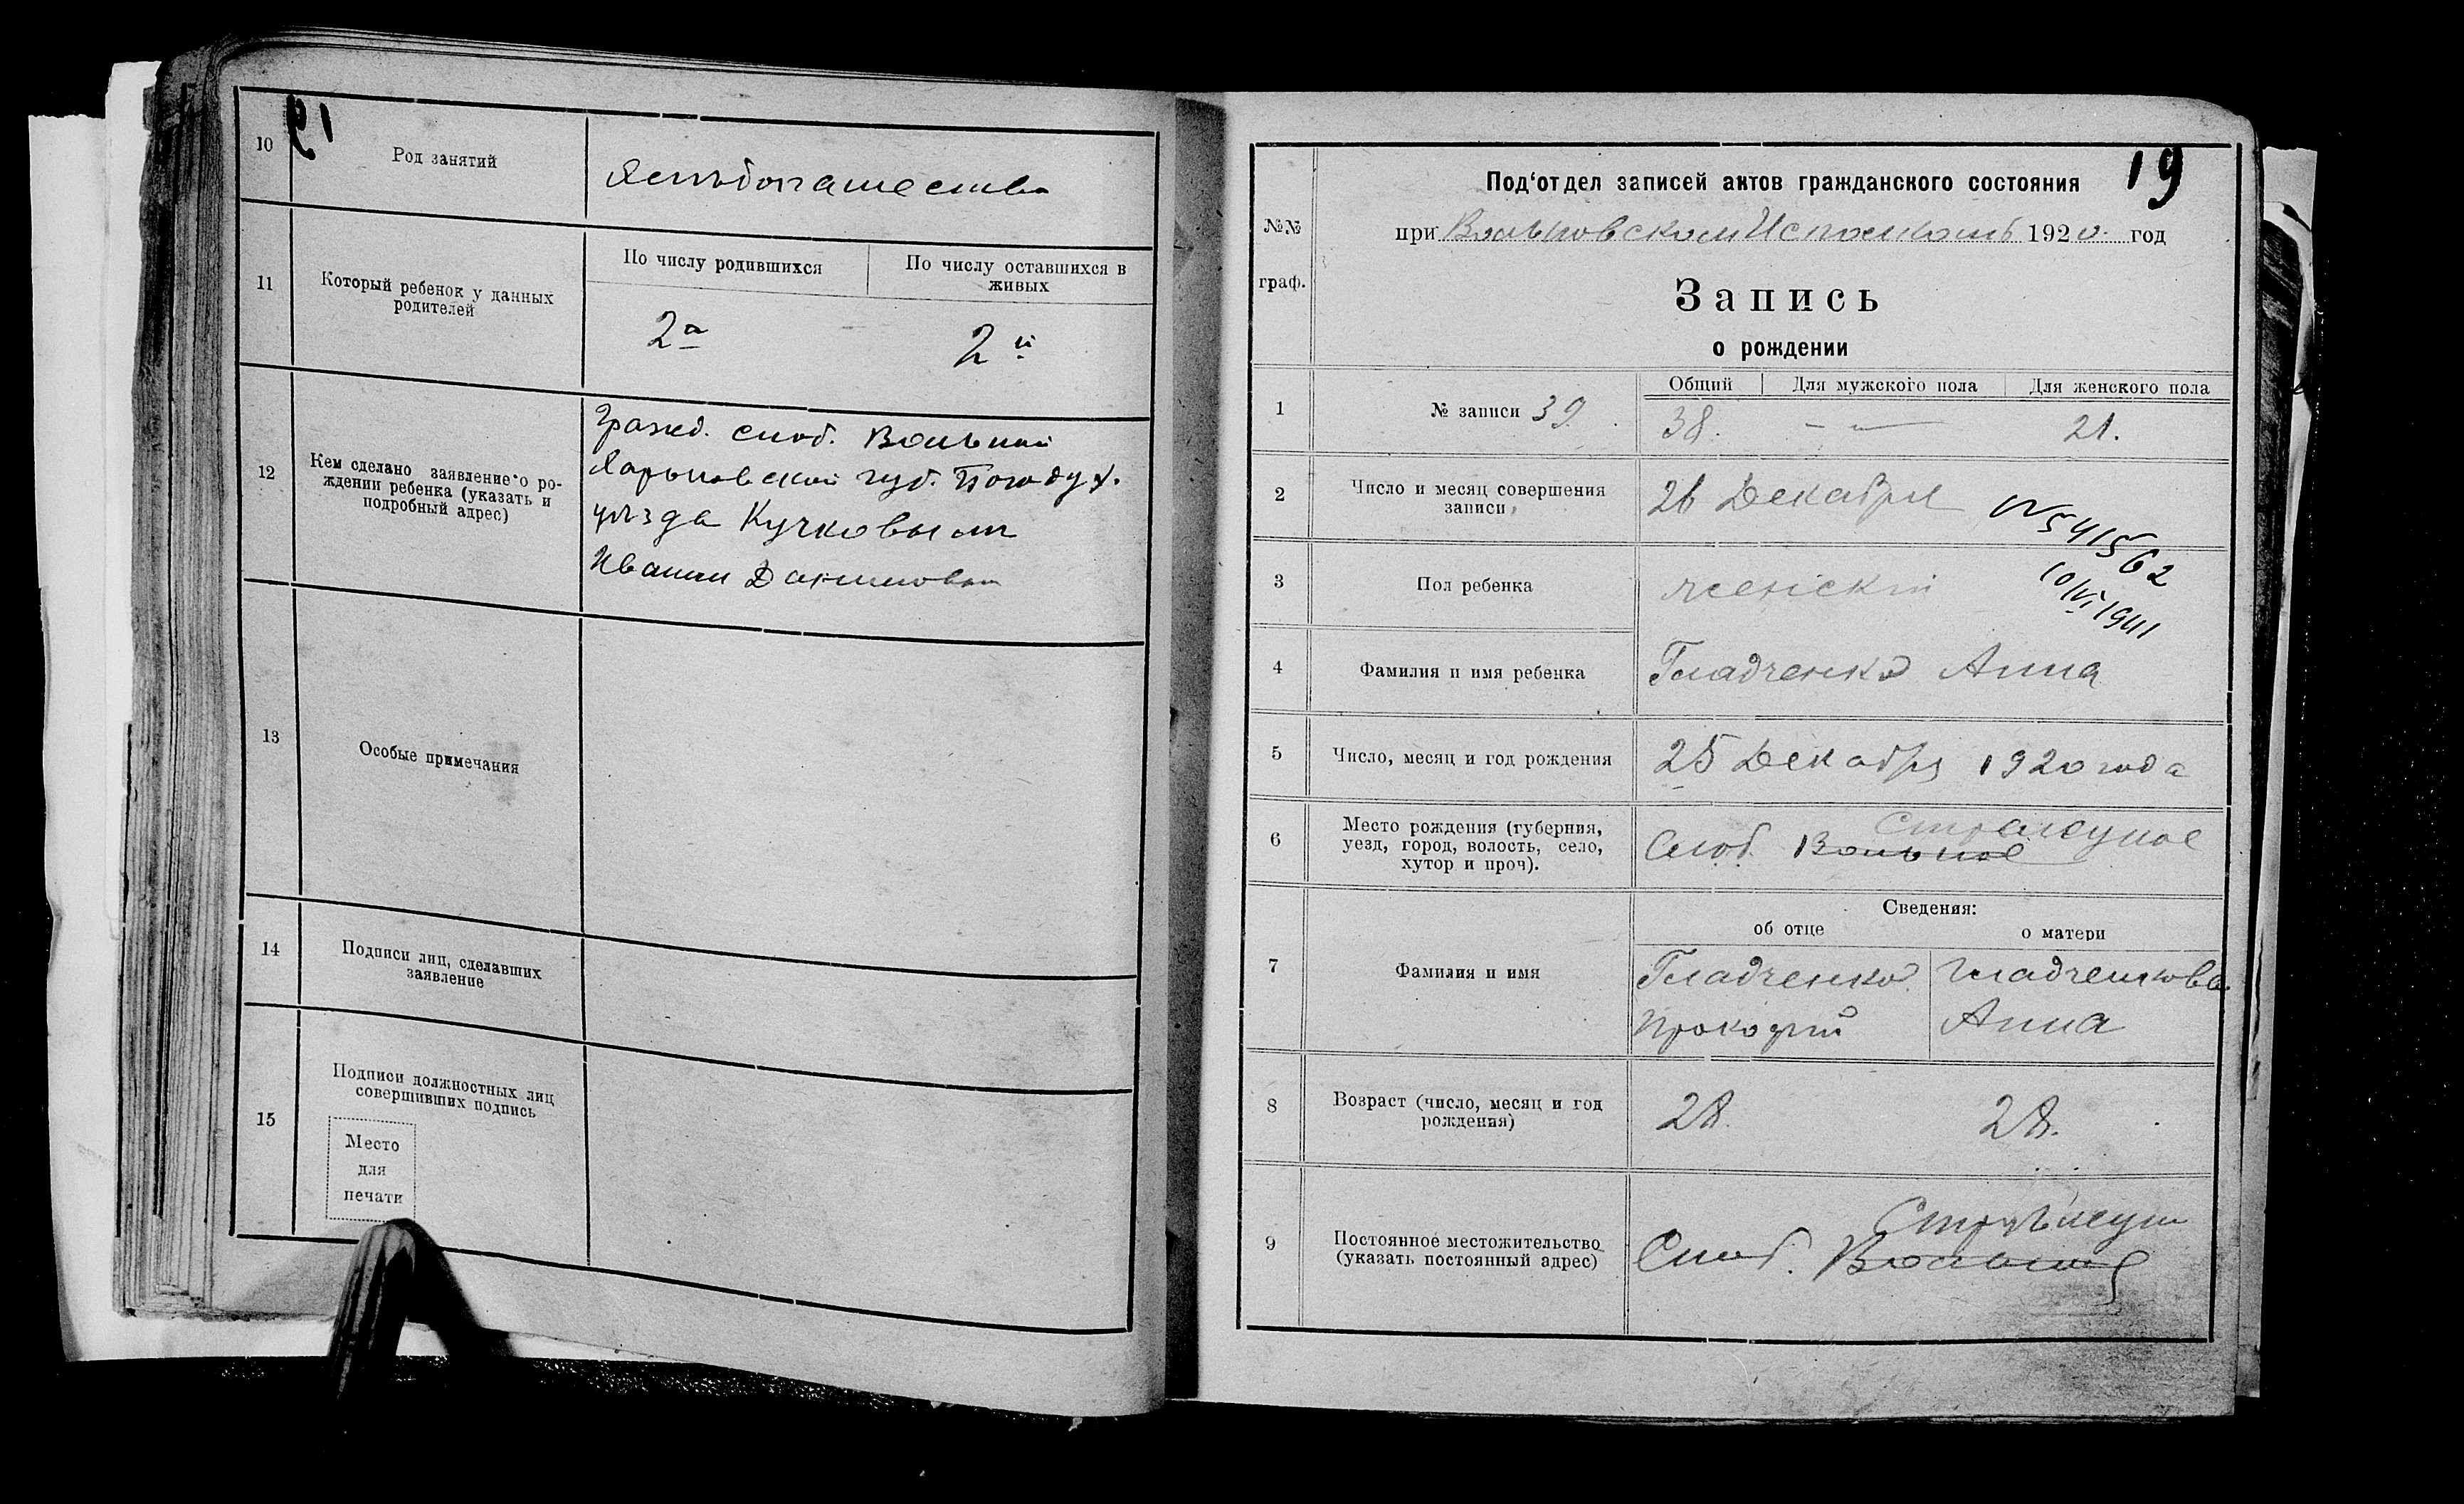 10
Род занятий
Хлѣбопашество
11
Который ребенок у данных
родителей
По числу родившихся
По числу оставшихся в
живых
2а
2й
12
Кем сделано заявление о ро-
ждении ребенка (указать и
подробный адрес)
Гражд. слоб. Вольной
Харьковской губ. Богодух.
уѣзда Кучковым
Иваном
13
Особые примечания
14
Подписи лиц, сделавших
заявление
15
Подписи должностных лиц
совершивших подпись
Место
для
печати
19
Под'отдел записей актов гражданского состояния
№№
граф.
при Вольновском Исполкомѣ 1920 год
Запись
о рождении
1
№ записи 39.
Общий
Для мужского пола
Для женского пола
38.
21.
2
Число и месяц совершения
записи
26 Декабря
№541562
10/VI 1941
3
Пол ребенка
женский
4
Фамилия и имя ребенка
Гладченко Анна
5
Число, месяц и год рождения
25 Декабря 1920 года
6
Место рождения (губерния,
уезд, город, волость, село,
хутор и проч).
Слоб. Вольное
7
Фамилия и имя
Сведения:
об отце
о матери
Гладченко
Прокофий
Гладченкова
Анна
8
Возраст (число, месяц и год
рождения)
28.
28.
9
Постоянное местожительство
(указать постоянный адрес)
Слоб.